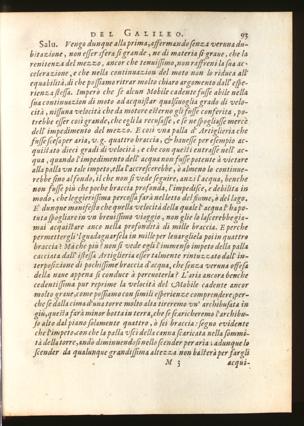 DEL GALILEO. 93
Salu. Vengo dunque alla prima, affermando senza veruna du-
bitazione, non esser sfera sì grande, ne di materia sì graue, che la
renitenza del mezzo, ancor che tenuissimo, non raffreni la sua ac-
celerazione, e che nella continuazion del moto non lo riduca all'
equabilità, di che possiamo ritrar molto chiaro argumento dall' espe-
rienza stessa. Imperò che se alcun Mobile cadente fusse abile nella
sua continuazion di moto ad acquistar qualsiuoglia grado di velo-
cità, nissuna velocità che da motore esterno gli fusse conferita, po-
trebbe esser così grande, che egli la recusasse, e se ne spogliasse mercè
dell' impedimento del mezzo. E così vna palla d' Artiglieria che
fusse scesa per aria, v. g. quattro braccia, & hauesse per esempio ac-
quistato dieci gradi di velocità, e che con questi entrasse nell' ac-
qua, quando l'impedimento dell' acqua non fusse potente à vietare
alla palla vn tale impeto, ella l'accrescerebbe, ò almeno lo continue-
rebbe sino al fondo, il che non si vede seguire, anzi l'acqua, benche
non fusse più che poche braccia profonda, l'impedisce, e debilita in
modo, che leggierissima percossa farà nel letto del fiume, ò del lago.
E' dunque manifesto che quella velocità della quale l'acqua l' ha po-
tuta spogliare in vn breuissimo viaggio, non glie la lascerebbe gia-
mai acquistare anco nella profondità di mille braccia. E perche
permettergli 'l guadagnarsela in mille per leuargliela poi in quattro
braccia? Mà che più? non si vede egli l'immenso impeto della palla
cacciata dall' istessa Artiglieria esser talmente rintuzzato dall' in-
terposizione di pochissime braccia d'acqua, che senza veruna offesa
della naue appena si conduce à percuoterla? L'aria ancora benche
cedentissima pur reprime la velocità del Mobile cadente ancor
molto graue, come possiamo con simili esperienze comprendere; per-
che se dalla cima d'una torre molto alta tireremo vn' archibusata in
giù, questa farà minor botta in terra, che se scaricheremo l' archibu-
so alto dal piano solamente quattro, ò sei braccia: segno euidente
che l'impeto, con che la palla vscì della canna scaricata nella sommi-
tà della torre, andò diminuendosi nello scender per aria: adunque lo
scender da qualunque grandissima altezza non basterà per fargli
M 3 acqui-